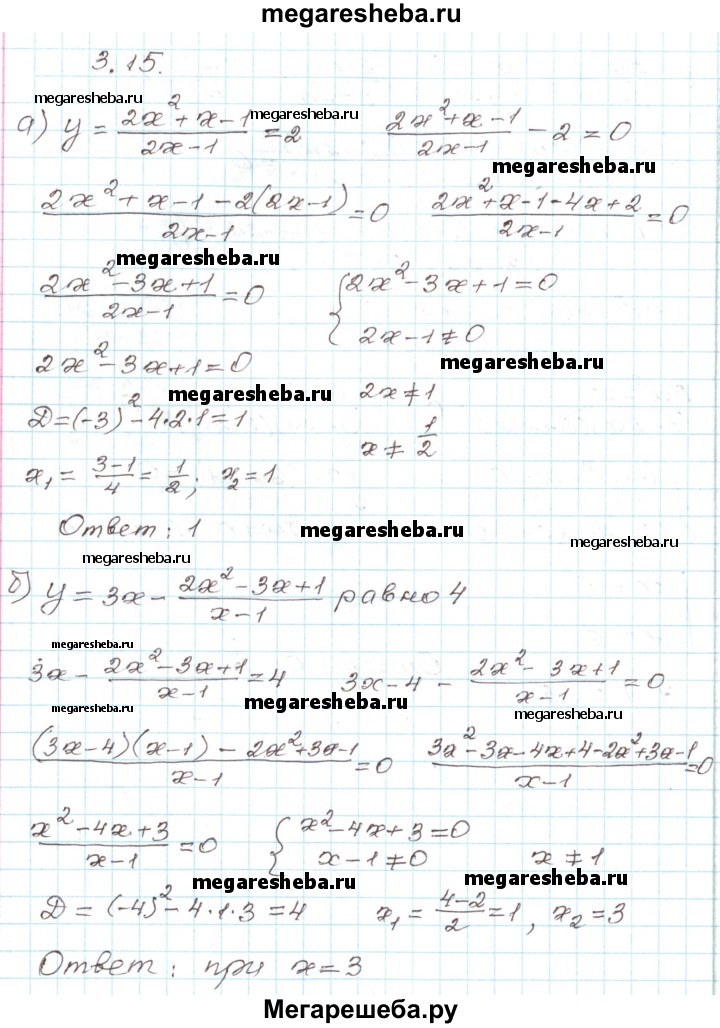 megaresheba.ru
3.15.
megaresheba.ru
а) y = (2x² + x - 1)/(2x - 1) = 2    (2x² + x - 1)/(2x - 1) - 2 = 0
megaresheba.ru
megaresheba.ru
(2x² + x - 1 - 2(2x - 1))/(2x - 1) = 0    (2x² + x - 1 - 4x + 2)/(2x - 1) = 0
megaresheba.ru
(2x² - 3x + 1)/(2x - 1) = 0    { 2x² - 3x + 1 = 0
2x - 1 ≠ 0
2x² - 3x + 1 = 0
megaresheba.ru
megaresheba.ru
2x ≠ 1
D = (-3)² - 4·2·1 = 1
x ≠ 1/2
x₁ = (3-1)/4 = 1/2; x₂ = 1
Ответ: 1
megaresheba.ru
megaresheba.ru
megaresheba.ru
б) y = 3x - (2x² - 3x + 1)/(x - 1) равно 4
megaresheba.ru
3x - (2x² - 3x + 1)/(x - 1) = 4    3x - 4 - (2x² - 3x + 1)/(x - 1) = 0
megaresheba.ru
megaresheba.ru
megaresheba.ru
((3x - 4)(x - 1) - 2x² + 3x - 1)/(x - 1) = 0    (3x² - 3x - 4x + 4 - 2x² + 3x - 1)/(x - 1) = 0
(x² - 4x + 3)/(x - 1) = 0    { x² - 4x + 3 = 0
x - 1 ≠ 0    x ≠ 1
megaresheba.ru
megaresheba.ru
D = (-4)² - 4·1·3 = 4    x₁ = (4-2)/2 = 1, x₂ = 3
Ответ: при x = 3
Мегарешеба.ру